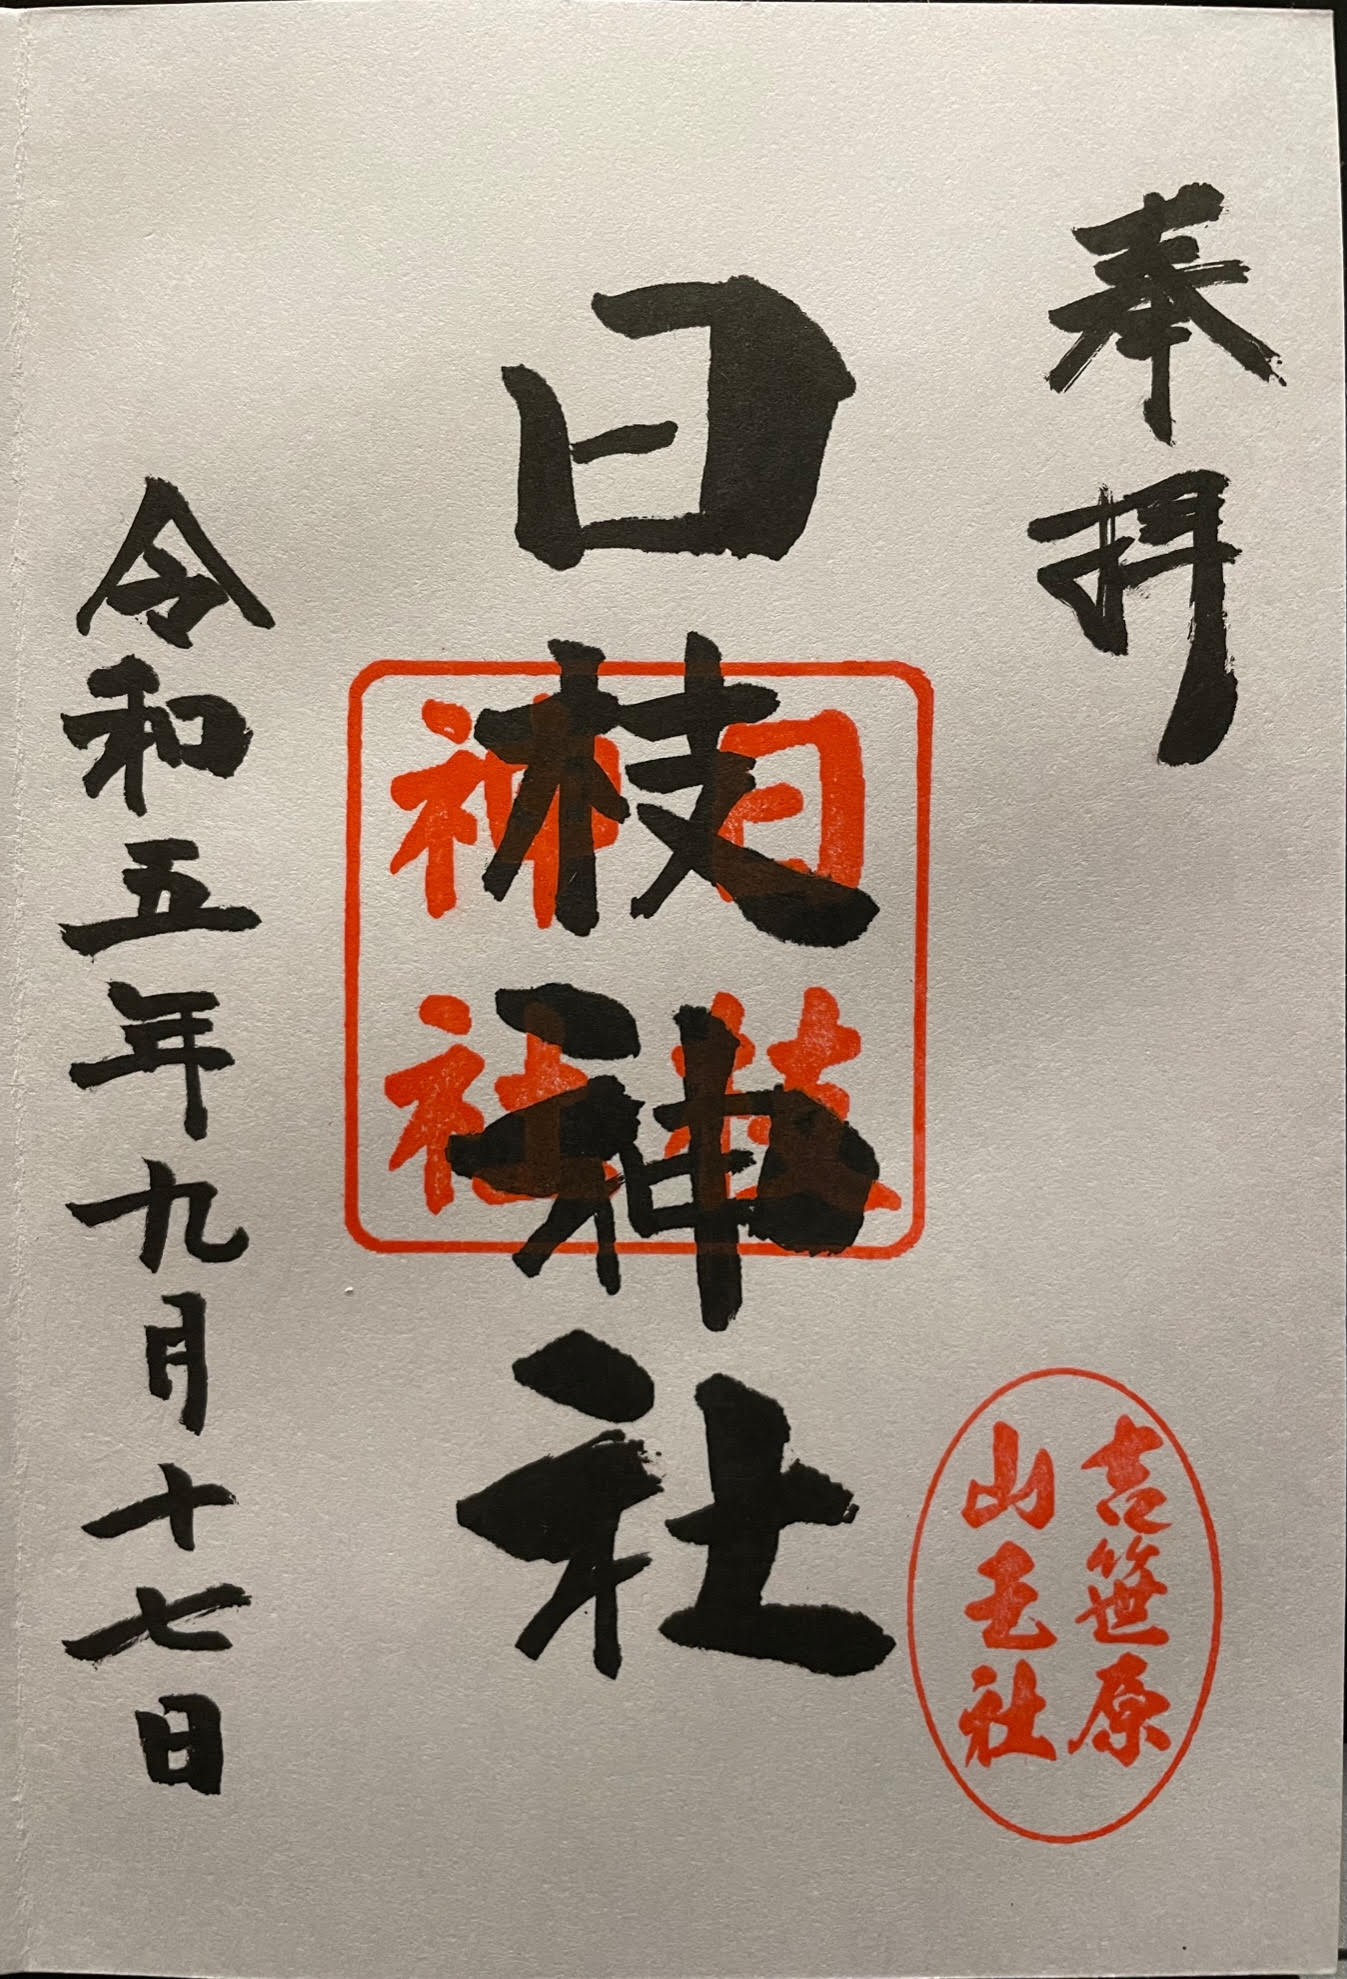 奉拝
吉笹原
山王社
日枝神社
日枝
神社
令和五年九月十七日